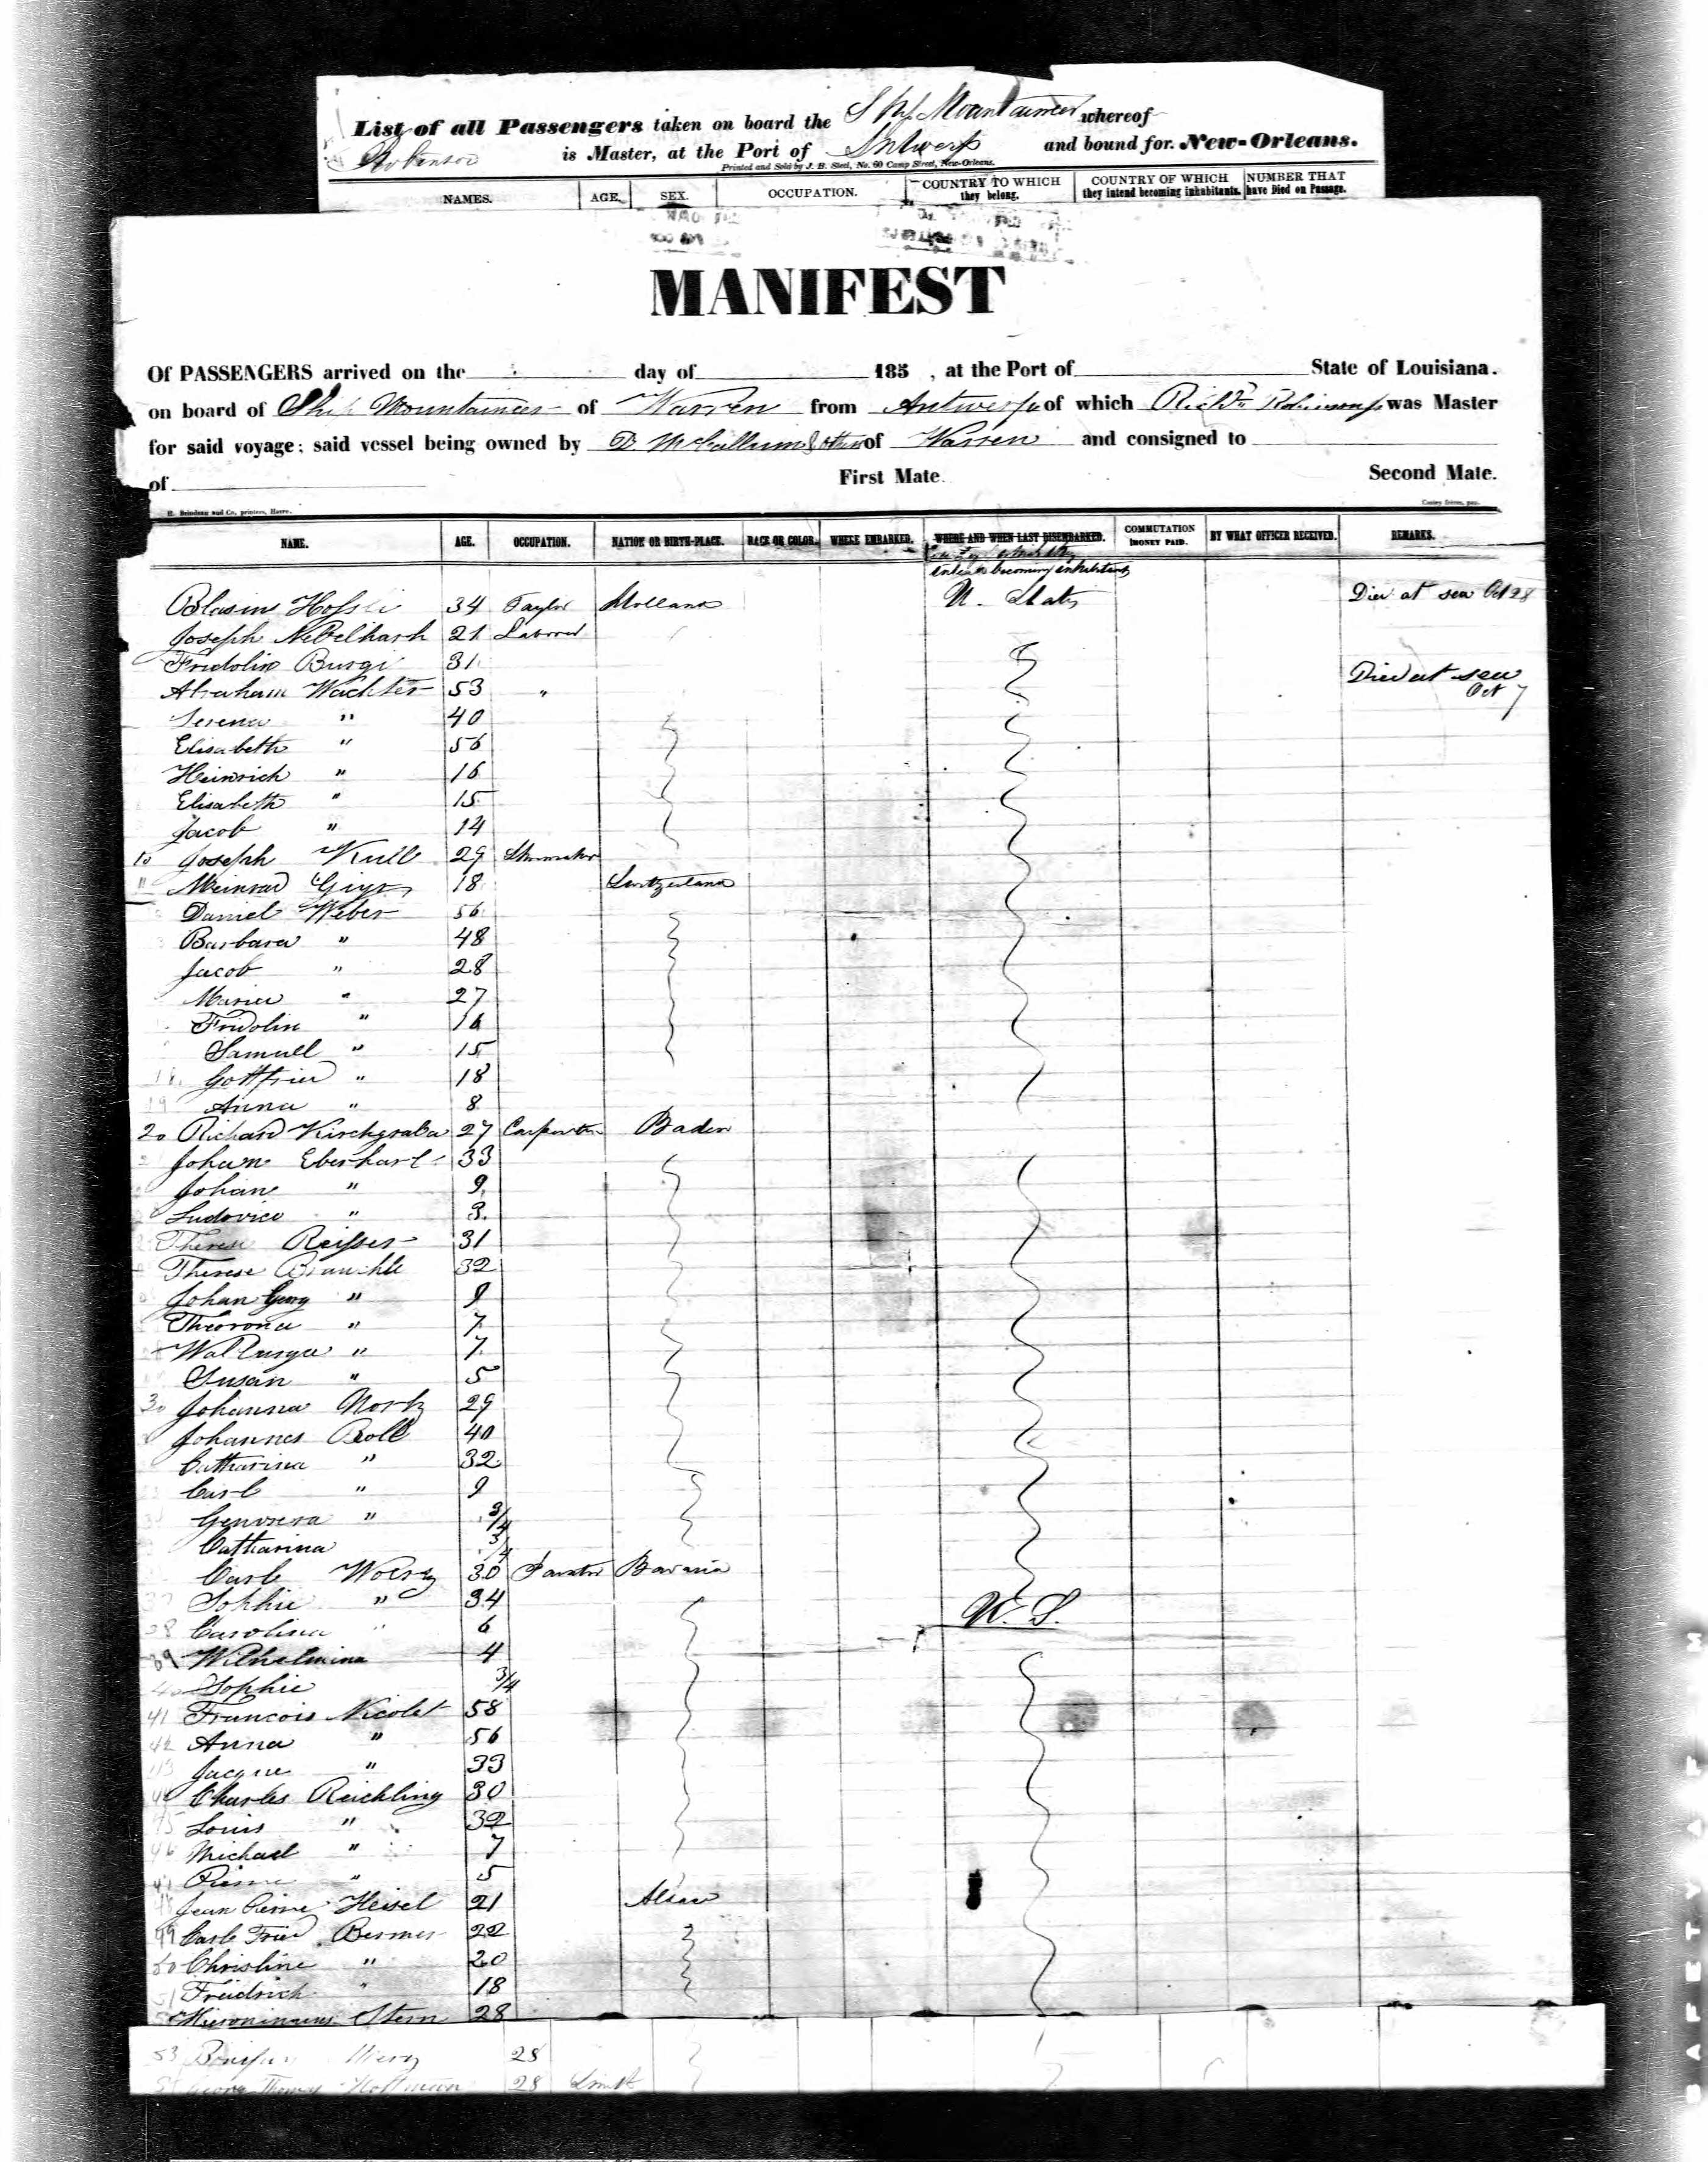 List of all Passengers taken on board the Ship Mountaineer whereof
Robinson is Master, at the Port of Antwerp and bound for New-Orleans.
Printed and Sold by J. B. Steel, No. 60 Camp Street, New-Orleans.
NAMES. AGE. SEX. OCCUPATION. COUNTRY TO WHICH they belong. COUNTRY OF WHICH they intend becoming inhabitants. NUMBER THAT have Died on Passage.
MANIFEST
Of PASSENGERS arrived on the day of 185 , at the Port of State of Louisiana.
on board of Ship Mountaineer of Warren from Antwerp of which Richd Robinson was Master
for said voyage; said vessel being owned by D. McCallum & others of Warren and consigned to
of First Mate. Second Mate.
H. Brindeau and Co, printers, Havre.
NAME. AGE. OCCUPATION. NATION OR BIRTH-PLACE. RACE OR COLOR. WHERE EMBARKED. WHERE AND WHEN LAST DISEMBARKED. COMMUTATION MONEY PAID. BY WHAT OFFICER RECEIVED. REMARKS.
intends becoming inhabitants
Blasius 34 Taylor Holland U. States Died at sea Oct 28
Joseph 21 Laborer
Fridolin Burgi 31
Abraham Wachter 53 " Died at sea Oct 7
Serena " 40
Elisabeth " 56
Heinrich " 16
Elisabeth " 15
Jacob " 14
10 Joseph Kull 29 Shoemaker
11 Meinrad 18 Switzerland
Daniel Weber 56
Barbara " 48
Jacob " 28
Maria " 27
Fridolin " 16
Samuell " 15
18 Gottfried " 18
19 Anna " 8
20 Richard 27 Carpenter Baden
Johann Eberhart 33
Johane " 9
Ludovica " 3
Therese Reisser 31
Therese 32
Johan Georg " 9
" 7
Walburga " 7
Susan " 5
30 Johanna 29
Johannes Boll 40
Catharina " 32
Carl " 9
Genovera " 3/4
Catharina 3/4
Carl 30 Bavaria
37 Sophie " 34 U. S.
38 Carolina " 6
39 Wilhelmina 4
40 Sophie 3/4
41 Francois Nicolet 58
42 Anna " 56
43 Jacque " 33
44 Charles Reichling 30
45 Louis " 32
46 Michael " 7
47 Pierre " 5
48 Jean Pierre Heisel 21 Alsace
49 Carl Fried Bermer 22
50 Christine " 20
51 Freidrich " 18
52 Hieronimus Stern 28
53 28
54 Hoffman 28
SAFETY FILM